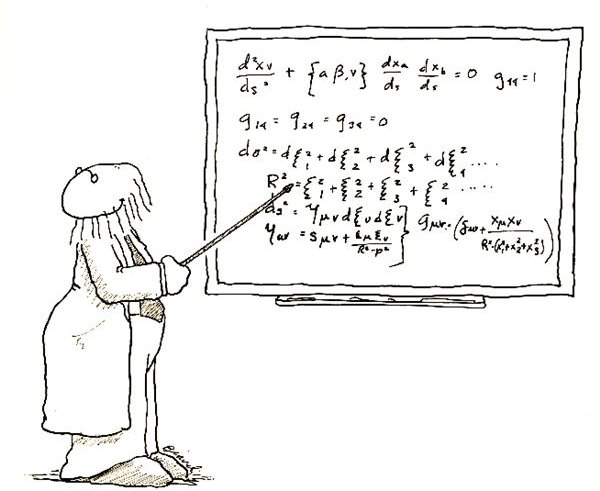 d²xν/ds² + {αβ,ν} dxa/ds dxb/ds = 0 g44=1
g14 = g24 = g34 = 0
dσ² = dξ1² + dξ2² + dξ3² + dξ4² ....
R² = ξ1² + ξ2² + ξ3² + ξ4² .....
ds² = γμν dξν dξν
γμν = Sμν + ξμξν/R²-p² } gμν = -(δμν + xμxν/R²-(x1²+x2²+x3²))